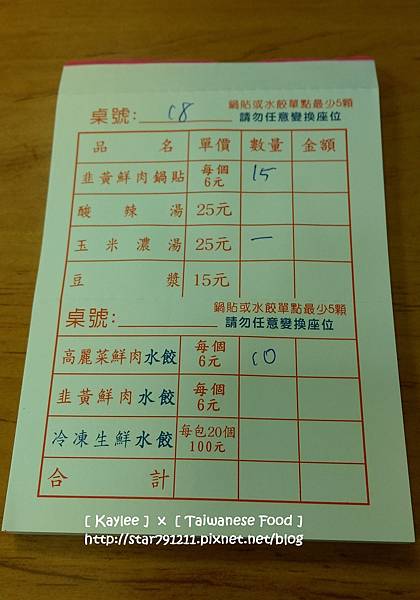 鍋貼或水餃單點最少5顆
桌號: 18 請勿任意變換座位
品名 單價 數量 金額
韭黃鮮肉鍋貼 每個6元 15
酸辣湯 25元
玉米濃湯 25元 一
豆漿 15元
鍋貼或水餃單點最少5顆
桌號: 請勿任意變換座位
高麗菜鮮肉水餃 每個6元 10
韭黃鮮肉水餃 每個6元
冷凍生鮮水餃 每包20個100元
合計
[ Kaylee ] x [ Taiwanese Food ]
http://star791211.pixnet.net/blog